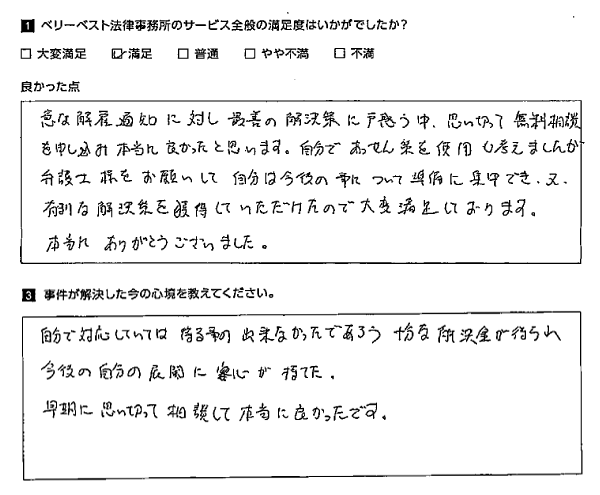 1 ベリーベスト法律事務所のサービス全般の満足度はいかがでしたか?
□ 大変満足 ☑ 満足 □ 普通 □ やや不満 □ 不満
良かった点
急な解雇通知に対し最善の解決策に戸惑う中、思い切って無料相談
を申し込み本当に良かったと思います。自分であっせん案を使用も考えましたが
弁護士様をお願いして自分は今後の事について準備に集中でき、又、
有利な解決策を獲得していただけたので大変満足しております。
本当にありがとうございました。
3 事件が解決した今の心境を教えてください。
自分で対応していては得る事の出来なかったであろう十分な解決金が得られ
今後の自分の展開に安心が持てた。
早期に思い切って相談して本当に良かったです。